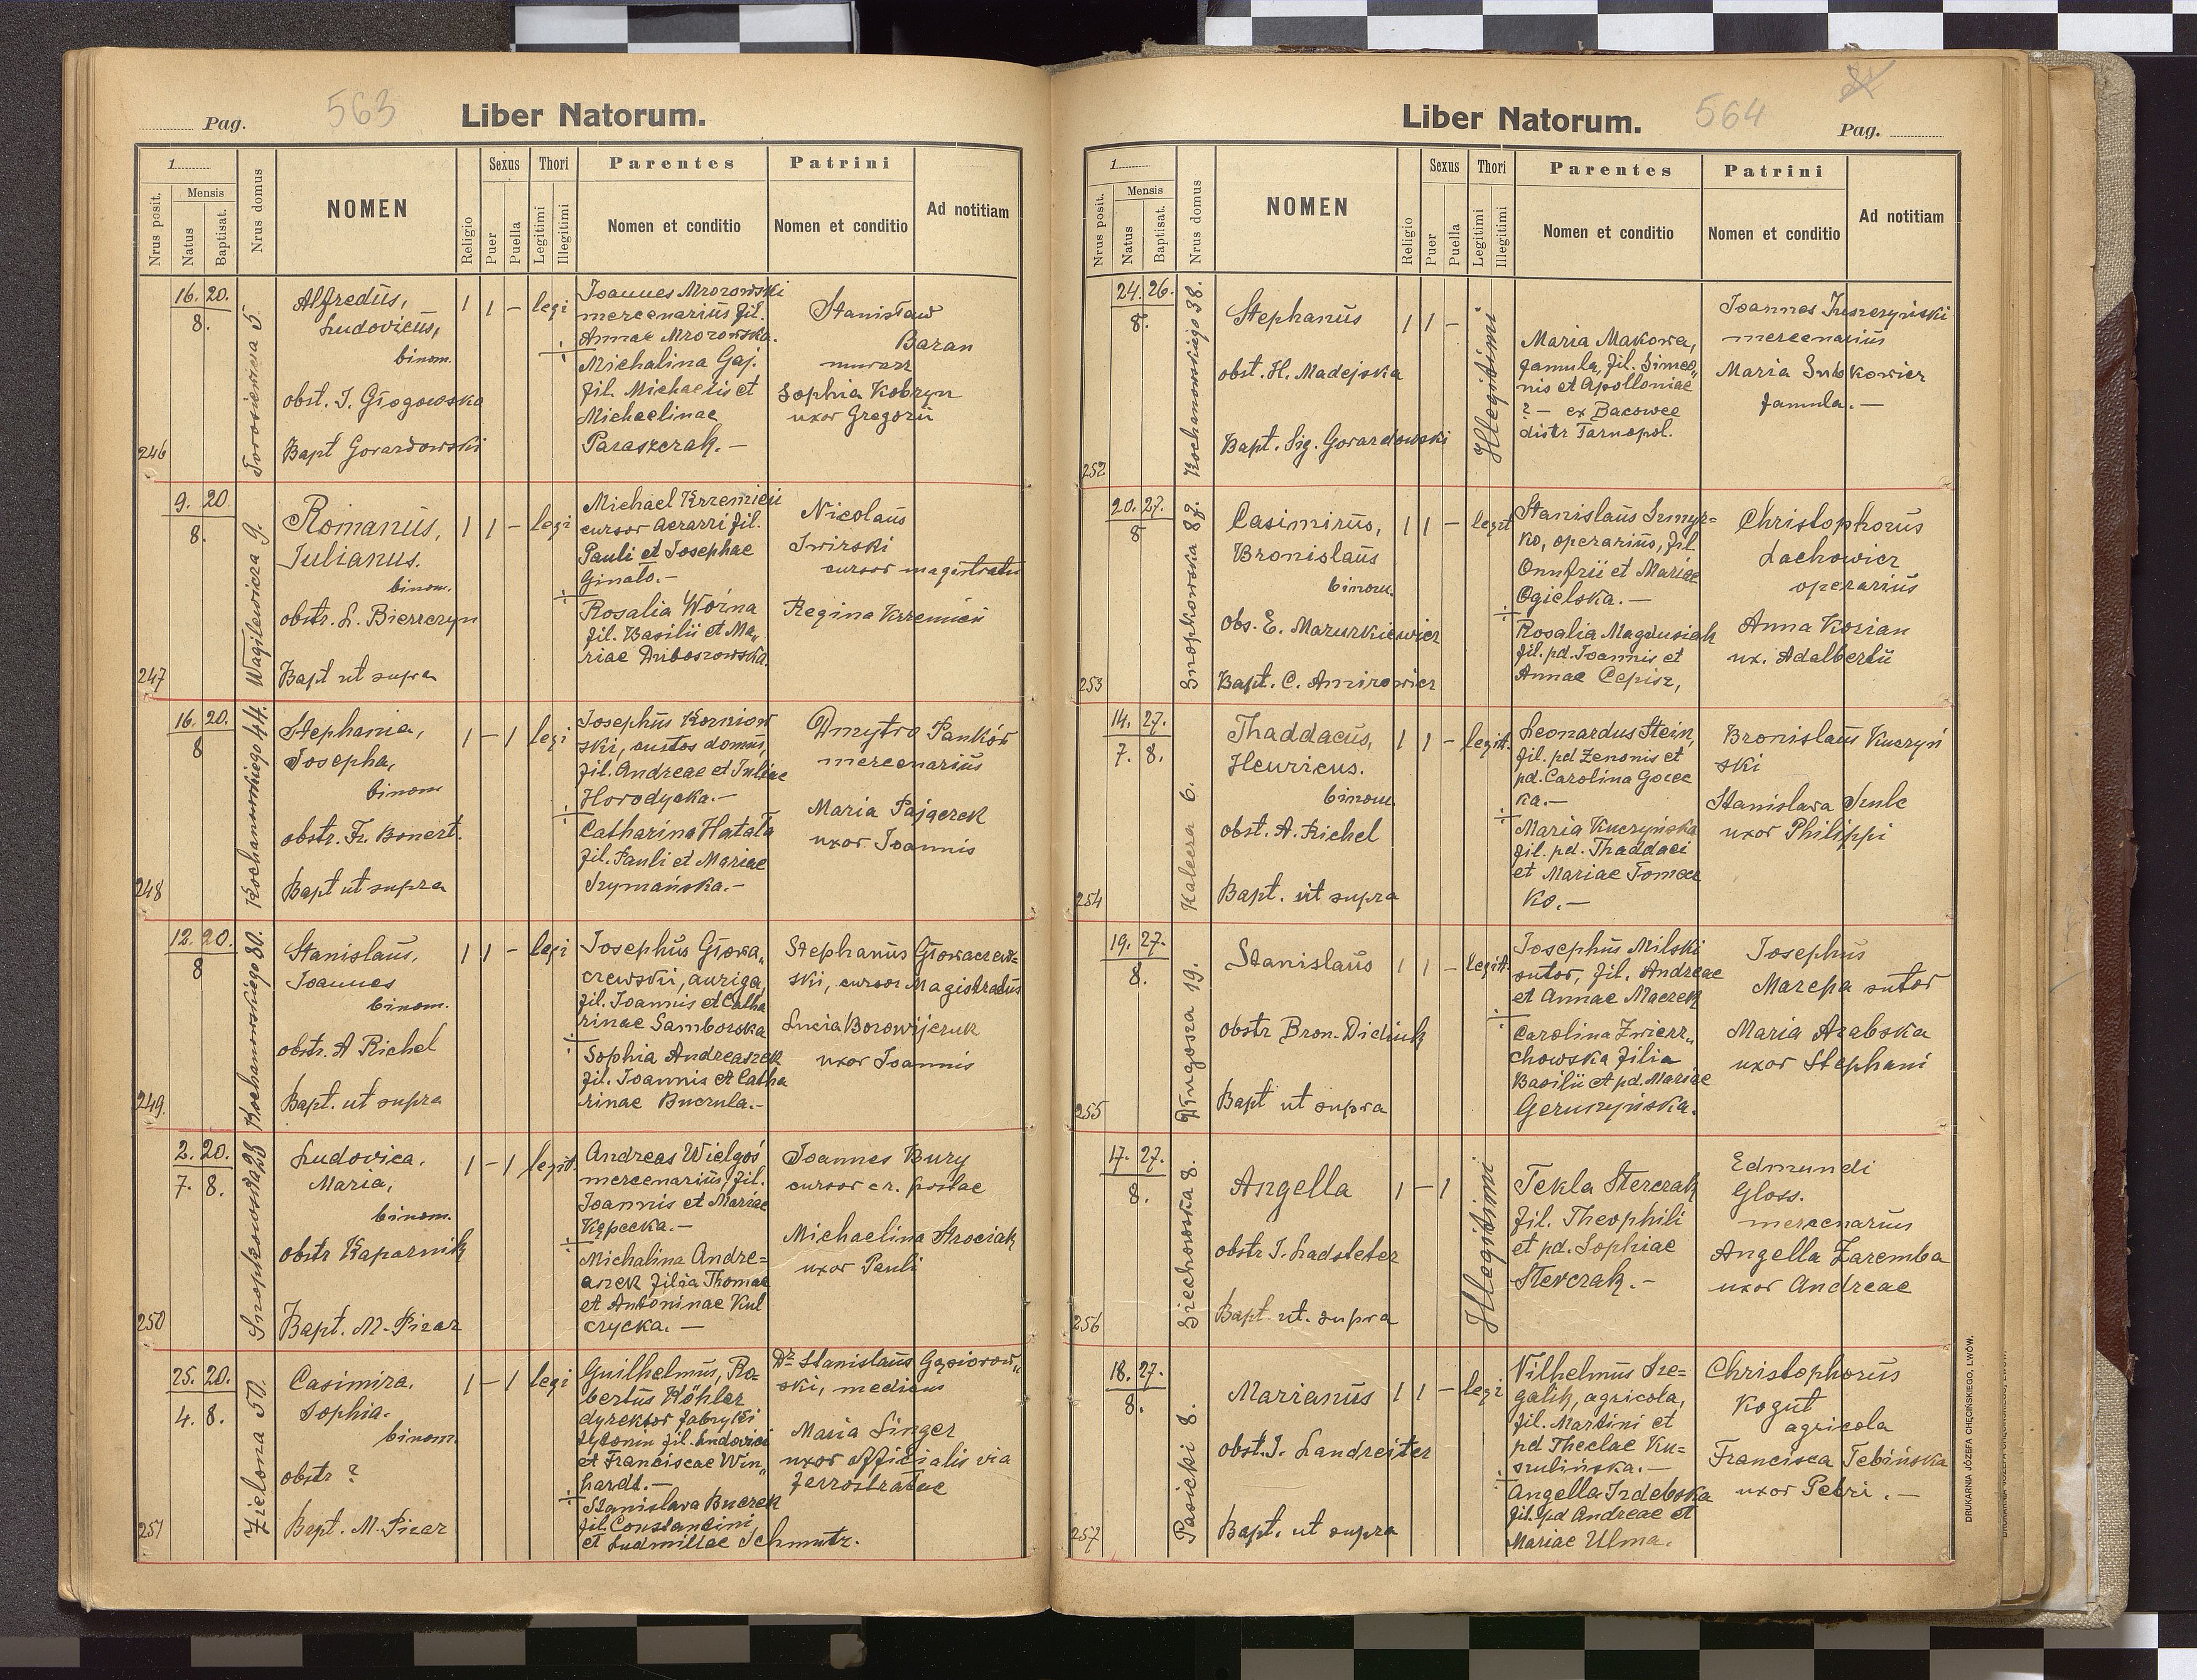 Pag.
563
Liber Natorum.
1
Nrus posit.
Mensis
Natus
Baptisat.
Nrus domus
NOMEN
Religio
Sexus
Puer
Puella
Thori
Legitimi
Illegitimi
Parentes
Nomen et conditio
Patrini
Nomen et conditio
Ad notitiam
246
16. 20.
8.
5.
Alfredus,
Ludovicus,
binom.
obst. J. Głogowska
Bapt Gorardowski
1 1 – legi
Joannes Mrozowski
mercenarius fil.
Annae Mrozowska.
÷
Michalina Gaj.
fil. Michaelis et
Michaelinae
Paraszczak.–
Stanisław
Baran
murarz
Sophia Kobryn
uxor Gregorii
247
9. 20
8.
Wagilewicza 9.
Romanus,
Julianus.
binom.
obstr. L. Bierzczyn
Bapt ut supra
1 1 – legi
Michael Krzemień
cursor aerarri fil.
Pauli et Josephae
Ginalo.–
÷
Rosalia Woźna
fil. Basilii et Ma„
riae Driboszowska.
Nicolaus
Iwirski
cursor magistratu
Regina Krzemień
248
16. 20.
8
Kochanowskiego 44.
Stephania,
Josepha,
binom
obstr. Fr. Bonert.
Bapt ut supra
1 – 1 legi
Josephus Korniow
ski, custos domus,
fil. Andreae et Juliae
Horodycka.–
÷
Catharina Hatała
fil. Pauli et Mariae
Szymańska.–
Dmytro Pańków
mercenarius
Maria Pajączek
uxor Joannis
249.
12. 20.
8
Kochanowskiego 80.
Stanislaus,
Joannes
binom.
obstr. A Richel
Bapt. ut supra
1 1 – legi
Josephus Głowa„
czewski, auriga,
fil. Joannis et Catha
rinae Samborska
÷
Sophia Andreaszek
fil. Joannis et Catha
rinae Buczula.–
Stephanus Głowaczew=
ski, cursor Magistratus
Lucia Borowijczuk
uxor Joannis
250
2. 20.
7. 8.
Snopkowska 28
Ludovica.
Maria,
binom.
obstr Kaparnik
Bapt. M. Pizar
1 – 1 legit.
Andreas Wielgoś
mercenarius, fil.
Joannis et Mariae
Kępecka.–
÷
Michalina Andre=
aszek filia Thomae
et Antoninae Kul
czycka. –
Joannes Bury
cursor cr. postae
Michaelina Strociak
uxor Pauli
251
25. 20.
4. 8.
Zielona 50.
Casimira.
Sophia.
binom.
obstr ?
Bapt. M. Pizar
1 – 1 legi
Guilhelmus, Ro=
bertus Köhler
dyrektor fabryki
tytoniu fil. Ludovici
et Franciscae Win„
hardt.–
÷
Stanislava Buczek
fil. Constantini,
et Ludmillae Schmutz.
Dr Stanislaus Gąsiorow„
ski, medicus
Maria Singer
uxor officialis via
ferrostratae
Liber Natorum.
564
Pag.
1
Nrus posit.
Mensis
Natus
Baptisat.
Nrus domus
NOMEN
Religio
Sexus
Puer
Puella
Thori
Legitimi
Illegitimi
Parentes
Nomen et conditio
Patrini
Nomen et conditio
Ad notitiam
252
24. 26.
8.
Kochanowskiego 38.
Stephanus
obst. H. Madejska
Bapt. Sig. Gorardowski
1 1 –
Illegitimi
Maria Makowa,
famula, fil. Simeo„
nis et Apolloniae
? – ex Bacowce
distr Tarnopol.
Joannes Juszczyński
mercenarius
Maria Sutkowicz
famula.–
253
20. 27.
8
Snopkowska 87.
Casimirus,
Bronislaus
binom.
obs. E. Mazurkiewicz
Bapt. C. Amirowicz
1 1 – legit
Stanislaus Szmyr=
ko, operarius, fil.
Onufrii et Mariae
Ogielska.–
÷
Rosalia Magdusiak
fil. pd. Joannis et
Annae Cepisz,
Christophorus
Lachowicz
operarius
Anna Kozian
ux. Adalberti
254
14. 27.
7. 8.
Kalecza 6.
Thaddaeus,
Henricus.
binom.
obst. A. Richel
Bapt. ut supra
1 1 – legit.
Leonardus Stein,
fil. pd Zenonis et
pd. Carolina Goree
ka.–
÷
Maria Kuczyńska
fil. pd. Thaddaei
et Mariae Tomcz
ko.–
Bronislaus Kuczyń
ski
Stanislava Szulc
uxor Philippi
255
19. 27.
8.
Długosza 19.
Stanislaus
obstr Bron. Dicliuk
Bapt ut supra
1 1 – legit.
Josephus Milski
sutor, fil. Andreae
et Annae Maczek
÷
Carolina Zwierz„
chowska filia
Basilii et pd. Mariae
Geruszyńska.
Josephus
Marepa sutor
Maria Arabska
uxor Stephani
256
17. 27.
8.
Ziechowska 8.
Angella
obstr J. Ladsteter
Bapt. ut. supra
1 – 1
Illegitimi
Tekla Sterczak
fil. Theophili
et pd. Sophiae
Sterczak.–
Edmundi
Gloss.
mercenarius
Angella Zaremba
uxor Andreae
257
18. 27.
8.
Pasieki 8.
Marianus
obst. J. Landreiter
Bapt. ut supra
1 1 – legi
Vilhelmus Sze=
galik, agricola,
fil. Martini et
pd Theclae Ku=
szulińska.–
÷
Angella Izdebska
fil. pd Andreae et
Mariae Ulma.
Christophorus
Kogut
agricola
Francisca Tebińska
uxor Petri.–
DRUKARNIA JÓZEFA CHĘCIŃSKIEGO, LWÓW.